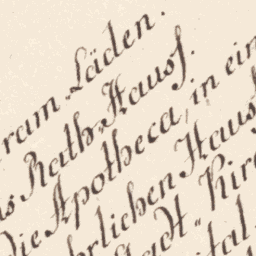 ram Läden.
s Rath Hauß.
die Apotheca, in ein
hrlichen Hauß
adt " Kirc
ital